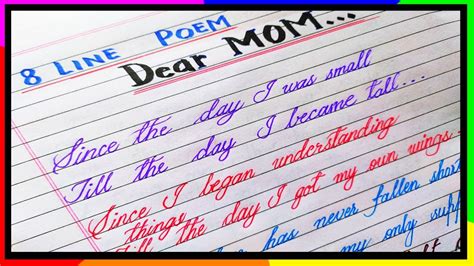 8 LINE POEM
Dear MOM...
Since the day I was small
Till the day I became tall...
Since I began understanding
things
Till the day I got my own wings
has never fallen short
my only supp